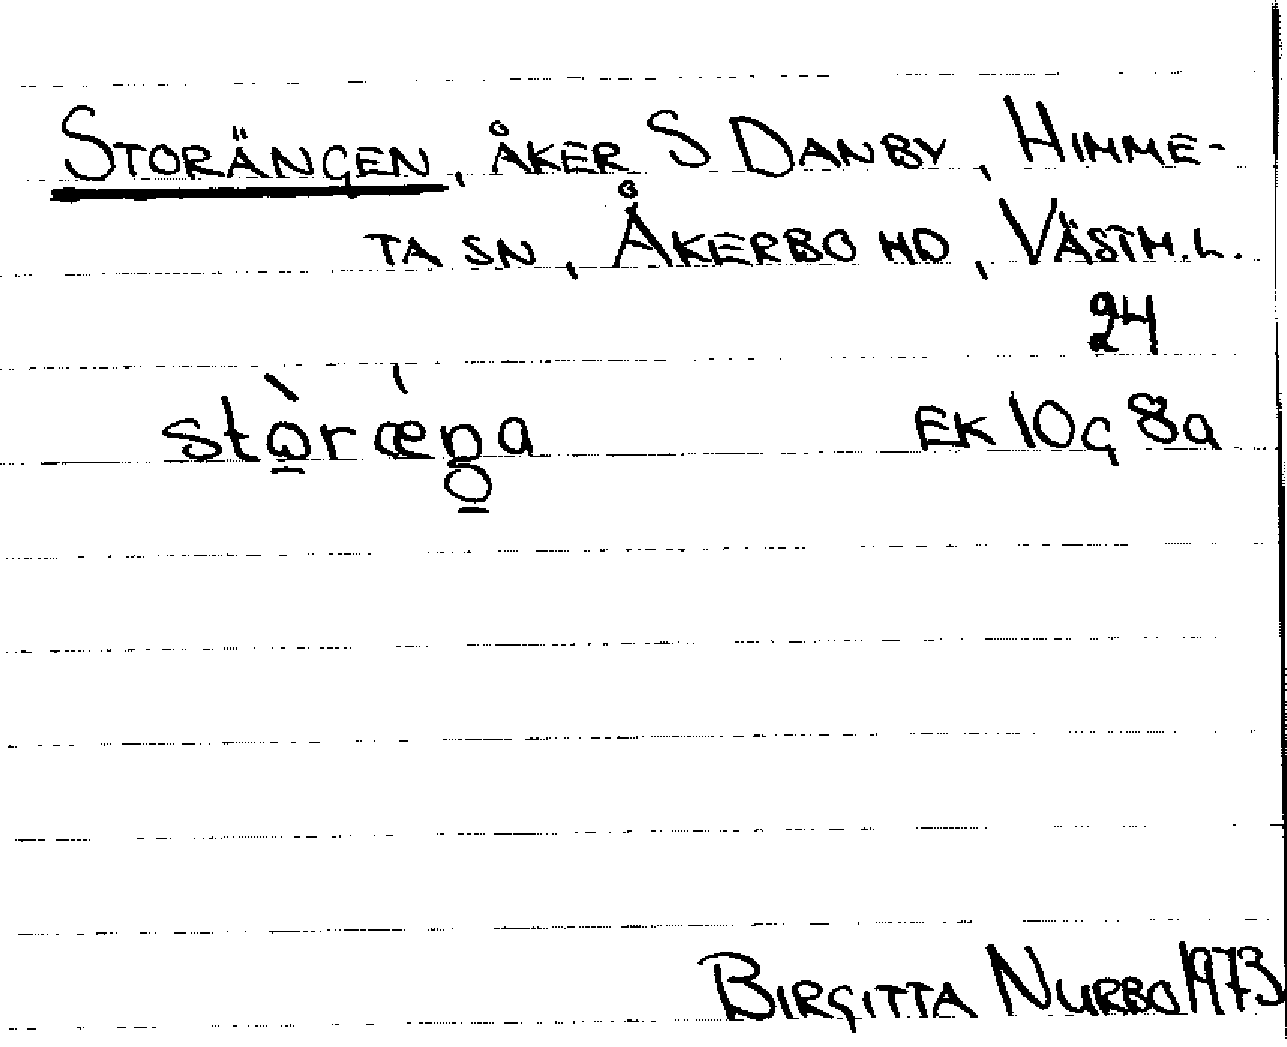 STORÄNGEN, ÅKER S DANBY, HIMME-
TA SN, ÅKERBO HD, VÄSTM.L.
24
stòræŋa EK 10G 8a
BIRGITTA NURBO 1973